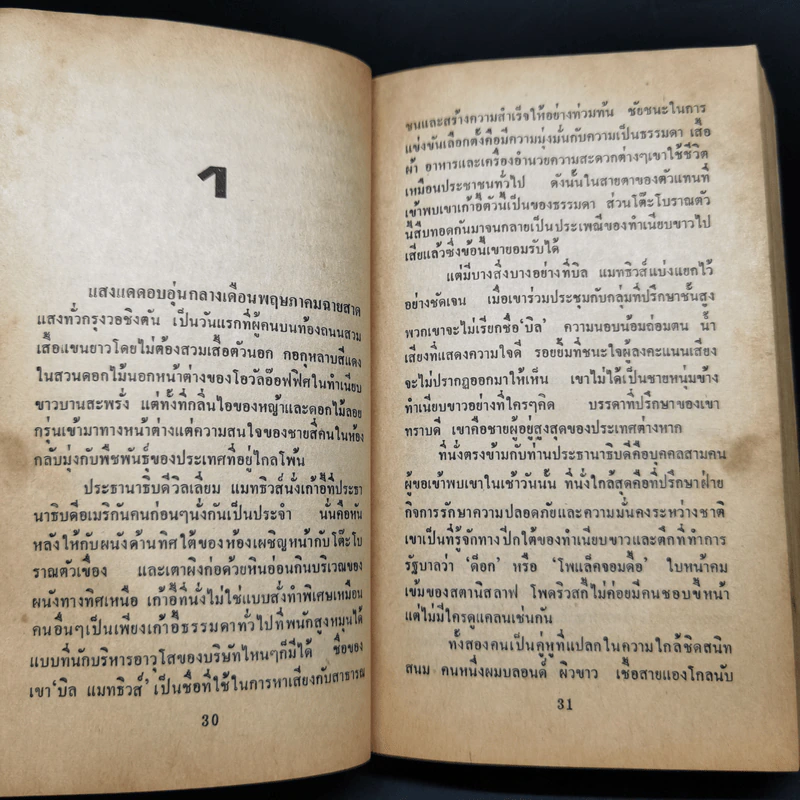 1
แสงแดดอบอุ่นกลางเดือนพฤษภาคมฉายสาด
แสงทั่วกรุงวอชิงตัน เป็นวันแรกที่ผู้คนบนท้องถนนสวม
เสื้อแขนยาวโดยไม่ต้องสวมเสื้อตัวนอก กอกุหลาบสีแดง
ในสวนดอกไม้นอกหน้าต่างของโอวัลอ๊อฟฟิศในทำเนียบ
ขาวบานสะพรั่ง แต่ทั้งที่กลิ่นไอของหญ้าและดอกไม้ลอย
กรุ่นเข้ามาทางหน้าต่างแต่ความสนใจของชายสี่คนในห้อง
กลับมุ่งกับพืชพันธุ์ของประเทศที่อยู่ไกลโพ้น
ประธานาธิบดีวิลเลี่ยม แมทธิวส์นั่งเก้าอี้ที่ประธา
นาธิบดีอเมริกันคนก่อนๆนั่งกันเป็นประจำ นั่นคือหัน
หลังให้กับผนังด้านทิศใต้ของห้องเผชิญหน้ากับโต๊ะโบ
ราณตัวเขื่อง และเตาผิงกอด้วยหินอ่อนกินบริเวณของ
ผนังทางทิศเหนือ เก้าอี้ที่นั่งไม่ใช่แบบสั่งทำพิเศษเหมือน
คนอื่นๆเป็นเพียงเก้าอี้ธรรมดาทั่วไปที่พนักสูงหมุนได้
แบบที่นักบริหารอาวุโสของบริษัทไหนๆก็มีได้ ชื่อของ
เขา'บิล แมทธิวส์'เป็นชื่อที่ใช้ในการหาเสียงกับสาธารณ
30
ชนและสร้างความสำเร็จให้อย่างท่วมท้น ชัยชนะในการ
แข่งขันเลือกตั้งคือมีความมุ่งมั่นกับความเป็นธรรมดา เสื้อ
ผ้า อาหารและเครื่องอำนวยความสะดวกต่างๆเขาใช้ชีวิต
เหมือนประชาชนทั่วไป ดังนั้นในสายตาของตัวแทนที่
เข้าพบเขาเก้าอี้ตัวนี้เป็นของธรรมดา ส่วนโต๊ะโบราณตัว
นี้สืบทอดกันมาจนกลายเป็นประเพณีของทำเนียบขาวไป
เสียแล้วซึ่งข้อนี้เขายอมรับได้
แต่มีบางสิ่งบางอย่างที่บิล แมทธิวส์แบ่งแยกไว้
อย่างชัดเจน เมื่อเขาร่วมประชุมกับกลุ่มที่ปรึกษาชั้นสูง
พวกเขาจะไม่เรียกชื่อ'บิล' ความนอบน้อมถ่อมตน น้ำ
เสียงที่แสดงความใจดี รอยยิ้มที่ชนะใจผู้ลงคะแนนเสียง
จะไม่ปรากฏออกมาให้เห็น เขาไม่ได้เป็นชายหนุ่มข้าง
ทำเนียบขาวอย่างที่ใครๆคิด บรรดาที่ปรึกษาของเขา
ทราบดี เขาคือชายผู้อยู่สูงสุดของประเทศต่างหาก
ที่นั่งตรงข้ามกับท่านประธานาธิบดีคือบุคคลสามคน
ผู้ขอเข้าพบเขาในเช้าวันนั้น ที่นั่งใกล้สุดคือที่ปรึกษาฝ่าย
กิจการรักษาความปลอดภัยและความมั่นคงระหว่างชาติ
เขาเป็นที่รู้จักทางปีกใต้ของทำเนียบขาวและตึกที่ทำการ
รัฐบาลว่า 'ด็อก' หรือ 'โพแล็คจอมดื้อ' ใบหน้าคม
เข้มของสตานิสลาฟ โพดริวสกี้ไม่ค่อยมีคนชอบขี้หน้า
แต่ไม่มีใครดูแคลนเช่นกัน
ทั้งสองคนเป็นคู่หูที่แปลกในความใกล้ชิดสนิท
สนม คนหนึ่งผมบลอนด์ ผิวขาว เชื้อสายแองโกลนับ
31